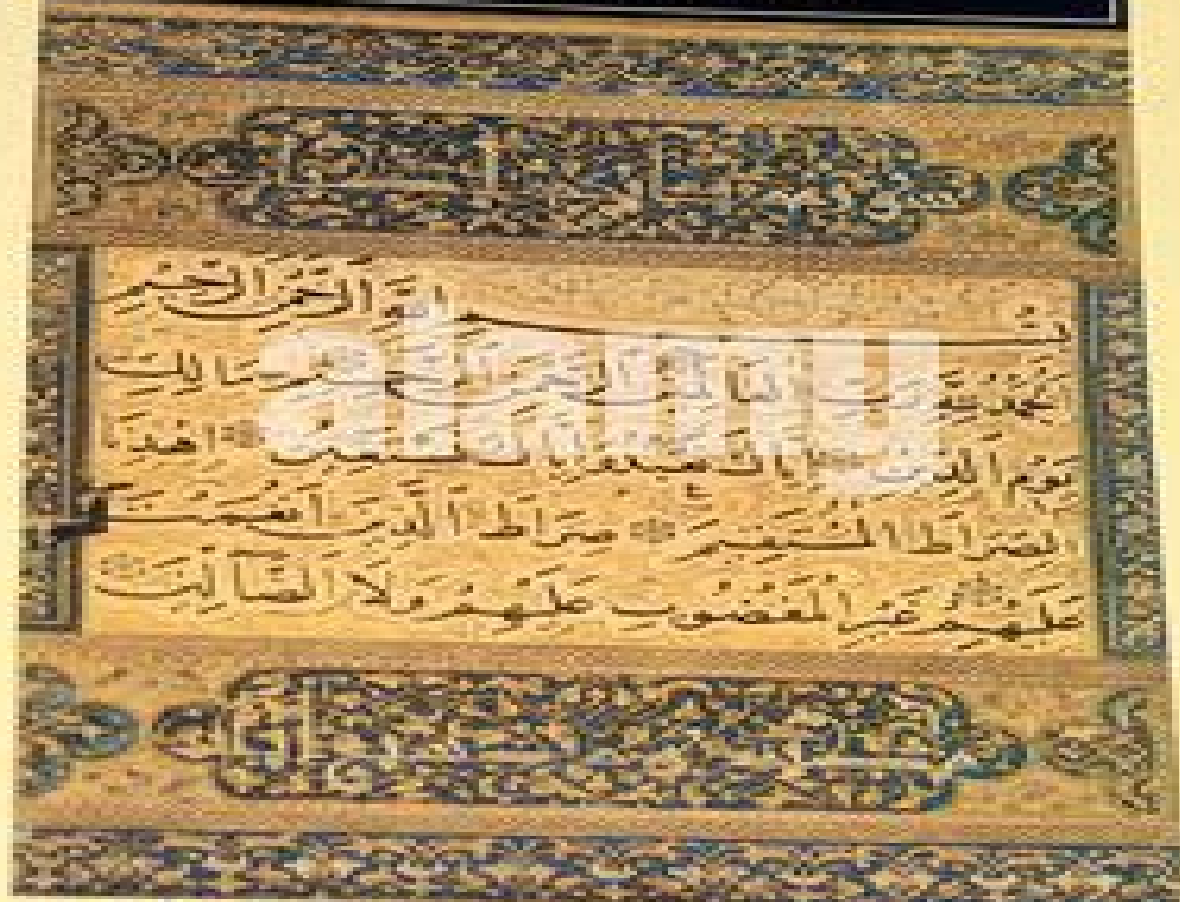 بسم الله الرحمن الرحيم
الحمد لله رب العالمين الرحمن الرحيم مالك
يوم الدين اياك نعبد واياك نستعين اهدنا
الصراط المستقيم صراط الذين انعمت
عليهم غير المغضوب عليهم ولا الضالين
alamy